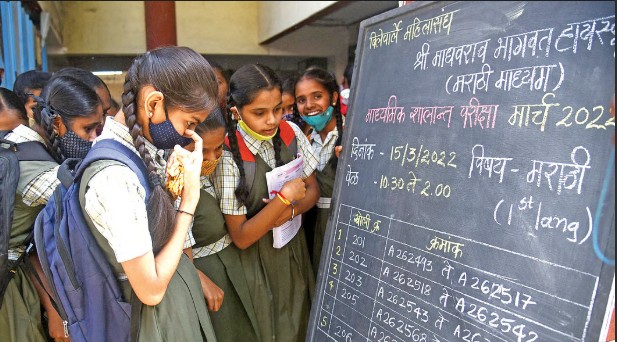 विलेपार्ले महिलासंघ
श्री माधवराव भागवत हायस्कू
(मराठी माध्यम)
माध्यमिक शालान्त परीक्षा मार्च 2022
दिनांक - 15/3/2022 विषय - मराठी
वेळ - 10.30 ते 2.00 (1st lang)
खोली क्र. क्रमांक
1 201 A 262493 ते A 262517
2 202 A 262518 ते A 262542
3 203 A 262543 ते A
4 205 A 262568 ते
5 206